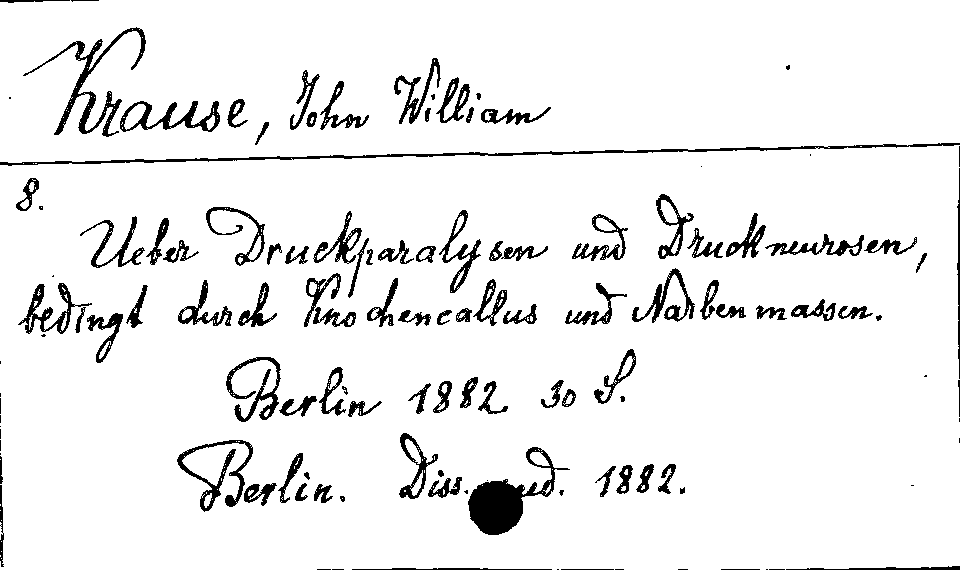 Krause, John William
8.
Ueber Druckparalysen und Druckneurosen,
bedingt durch Knochencallus und Narbenmassen.
Berlin 1882 30 S.
Berlin. Diss. med. 1882.